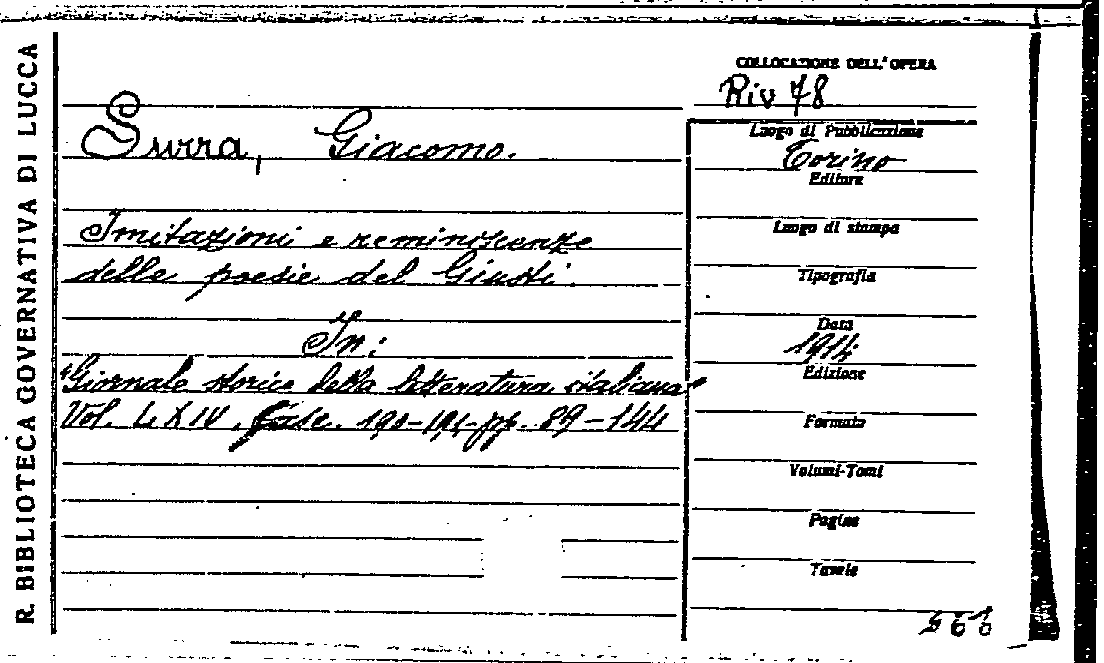 R. BIBLIOTECA GOVERNATIVA DI LUCCA
Surra, Giacomo.
Imitazioni e reminiscenze
delle poesie del Giusti.
In:
"Giornale storico della letteratura italiana"
Vol. LXIV. Fasc. 190-191-pp. 89-144
COLLOCAZIONE DELL'OPERA
Riv 78
Luogo di Pubblicazione
Torino
Editore
Luogo di stampa
Tipografia
Data
1914
Edizione
Formato
Volumi-Tomi
Pagine
Tavole